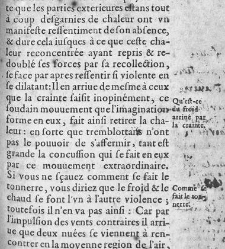 que les parties exterieures estans tout
à coup desgarnies de chaleur ont vn
manifeste ressentiment de son absence,
& dure cela iusques à ce que ceste cha-
leur reconcentrée ayant repris & re-
doublé ses forces par sa recollection,
se face par apres ressentir si violente en
se dilatant: Il en arriue de mesme à ceux
que la crainte saisit inopinément, ce
soudain mouuement que l'imagination
forme en eux, fait ainsi retirer la cha-
leur: en sorte que tremblottans n'ont
pas le pouuoir de s'affermir, tant est
grande la concussion qui se fait en eux
par ce mouuement extraordinaire.
Si vous ne sçauez comment se fait le
tonnerre, vous diriez que le froid & le
chaud se font l'vn à l'autre violence;
toutesfois il n'en va pas ainsi: Car par
l'impulsion des vents contraires il arri-
ue que deux nuées se viennent à ren-
contrer en la moyenne region de l'air,
Qu'est-ce
du froid
arriué par
la crainte.
Comme
se fait le ton-
nerre.